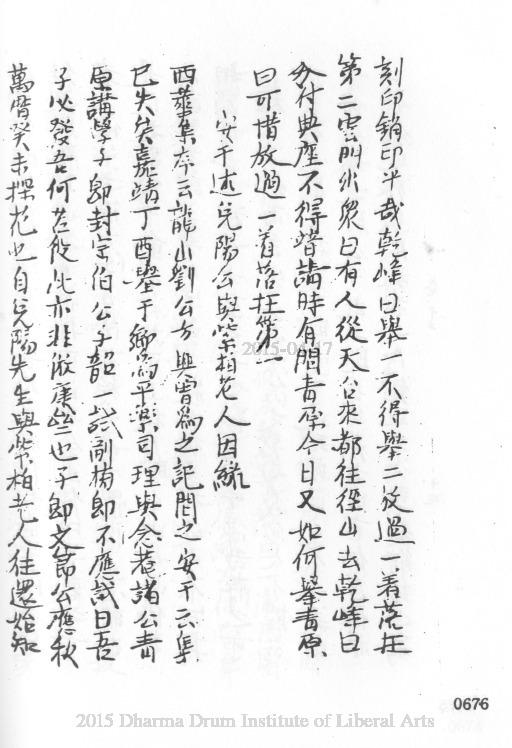 刻印銷印乎哉乾峰曰舉一不得舉二放過一着落在
第二雲門出眾曰有人從天台來都往徑山去乾峰曰
分付典座不得普請時有問青原今日又如何舉青原
曰可惜放過一着落在第一
安干述兌陽公與紫柏老人因緣
西華集序云龍山劉公方興曾為之記問之安干云集
已失矣嘉靖丁酉舉于鄉為平樂司理與念菴諸公青
原講學子即封字伯公子韶一試副榜即不應試曰吾
子必發吾何苦役此亦非儌康也子即文節公應秋
萬曆癸未探花也自兌陽先生與紫柏老人往還始知
2015-04-17
0676
2015 Dharma Drum Institute of Liberal Arts